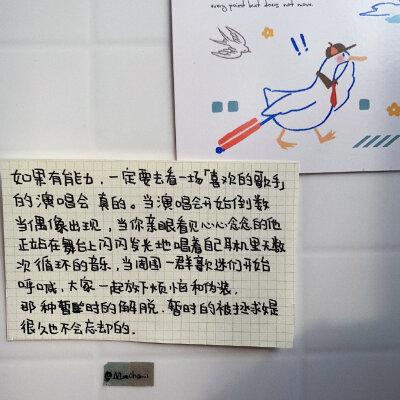 every point but does not move.
!!
如果有能力，一定要去看一场「喜欢的歌手」
的演唱会 真的。当演唱会开始倒数
当偶像出现，当你亲眼看见心心念念的他
正站在舞台上闪闪发光地唱着自己耳机里无数
次循环的音乐，当周围一群歌迷们开始
呼喊，大家一起放下烦恼和伪装，
那种暂时的解脱．暂时的被拯救是
很久也不会忘却的．